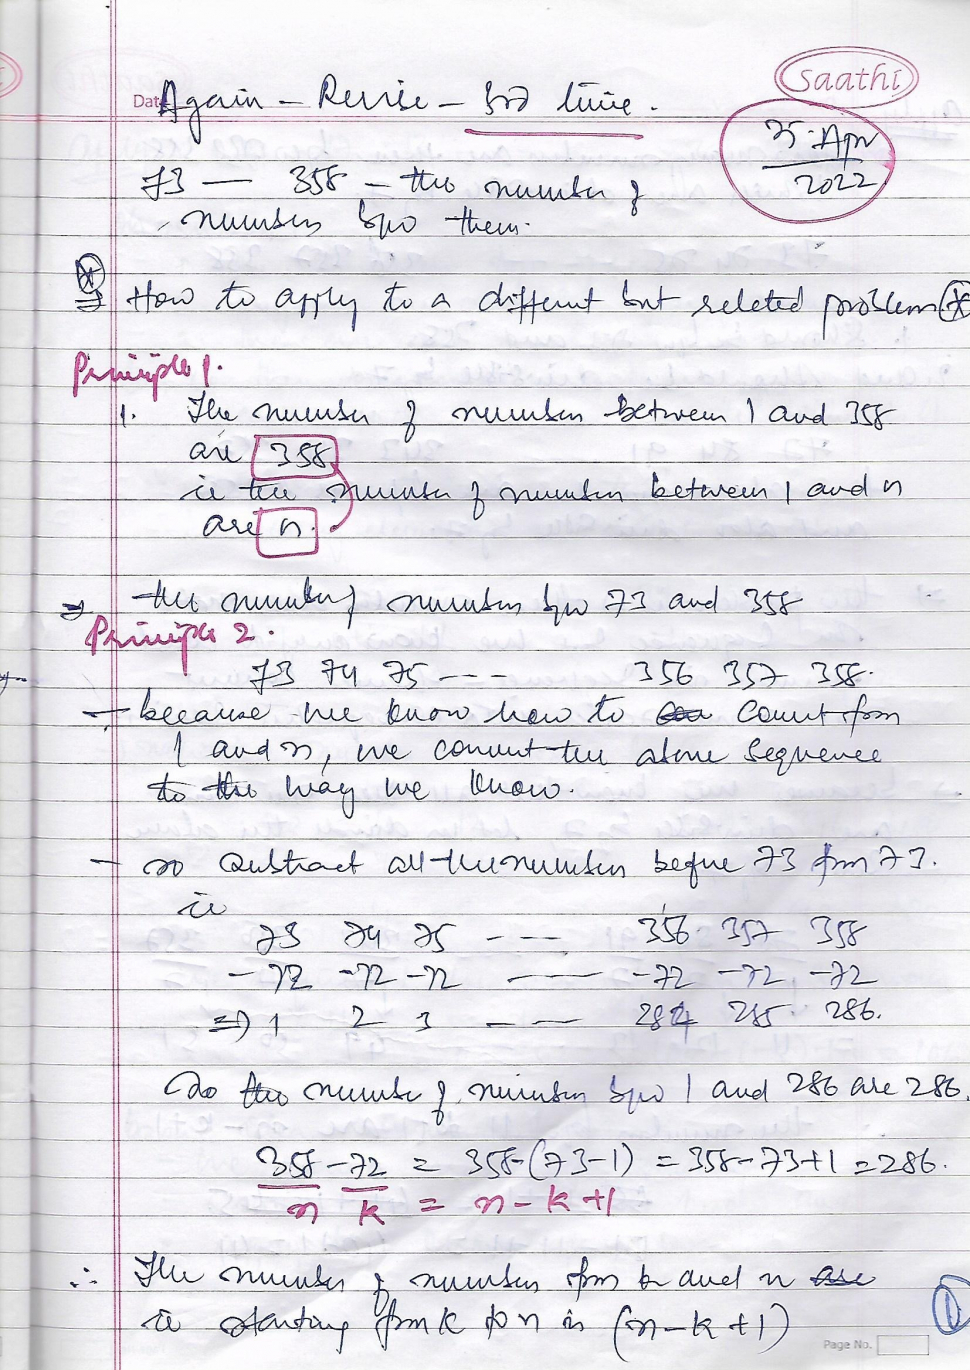 Saathi
Date
Again - Revise - 3rd time.
25 Apr
2022
73 — 358 - the number of
numbers bpw them.
⇒ How to apply to a different but related problem
Principle 1.
1. The number of numbers between 1 and 358
are 358
ie the number of numbers between 1 and n
are n.
⇒ the number of numbers bpw 73 and 358
Principle 2.
73 74 75 --- 356 357 358.
- because we know how to count from
1 and n, we convert the above sequence
to the way we know.
- so subtract all the numbers before 73 from 73.
ie
73 74 75 ---- 356 357 358
-72 -72 -72 —— -72 -72, -72
⇒ 1 2 3 — — 284 285 286.
So the number of numbers bpw 1 and 286 are 286.
358-72 = 358-(73-1) = 358-73+1 = 286.
n k = n-k+1
∴ The number of numbers from k and n are
ie starting from k to n is (n-k+1)
1
Page No.